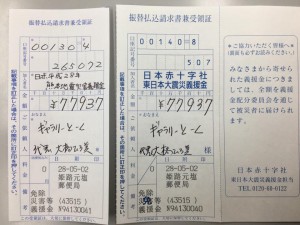 振替払込請求書兼受領証
00130 4
265072
日赤平成28年
熊本地震災害義援金
¥77937
ギャラリーとーく
代表
28-05-02
姫路元塩
郵便局
免除
災害等 (43515)
義援金 894130040
記載事項を訂正した場合は、その箇所に訂正印を押してください。
振替払込請求書兼受領証
00140 8
507
日本赤十字社
東日本大震災義援金
¥77937
ギャラリーとーく
代表
28-05-02
姫路元塩
郵便局
免除
災害等 (43515)
義援金 894130041
記載事項を訂正した場合は、その箇所に訂正印を押してください。
<ご協力いただく皆様へ>
みなさまから寄せられた義援金につきましては、全額を義援金配分委員会を通じて被災者に届けられます。
日本赤十字社
東日本大震災義援金窓口
TEL.0120-60-0122